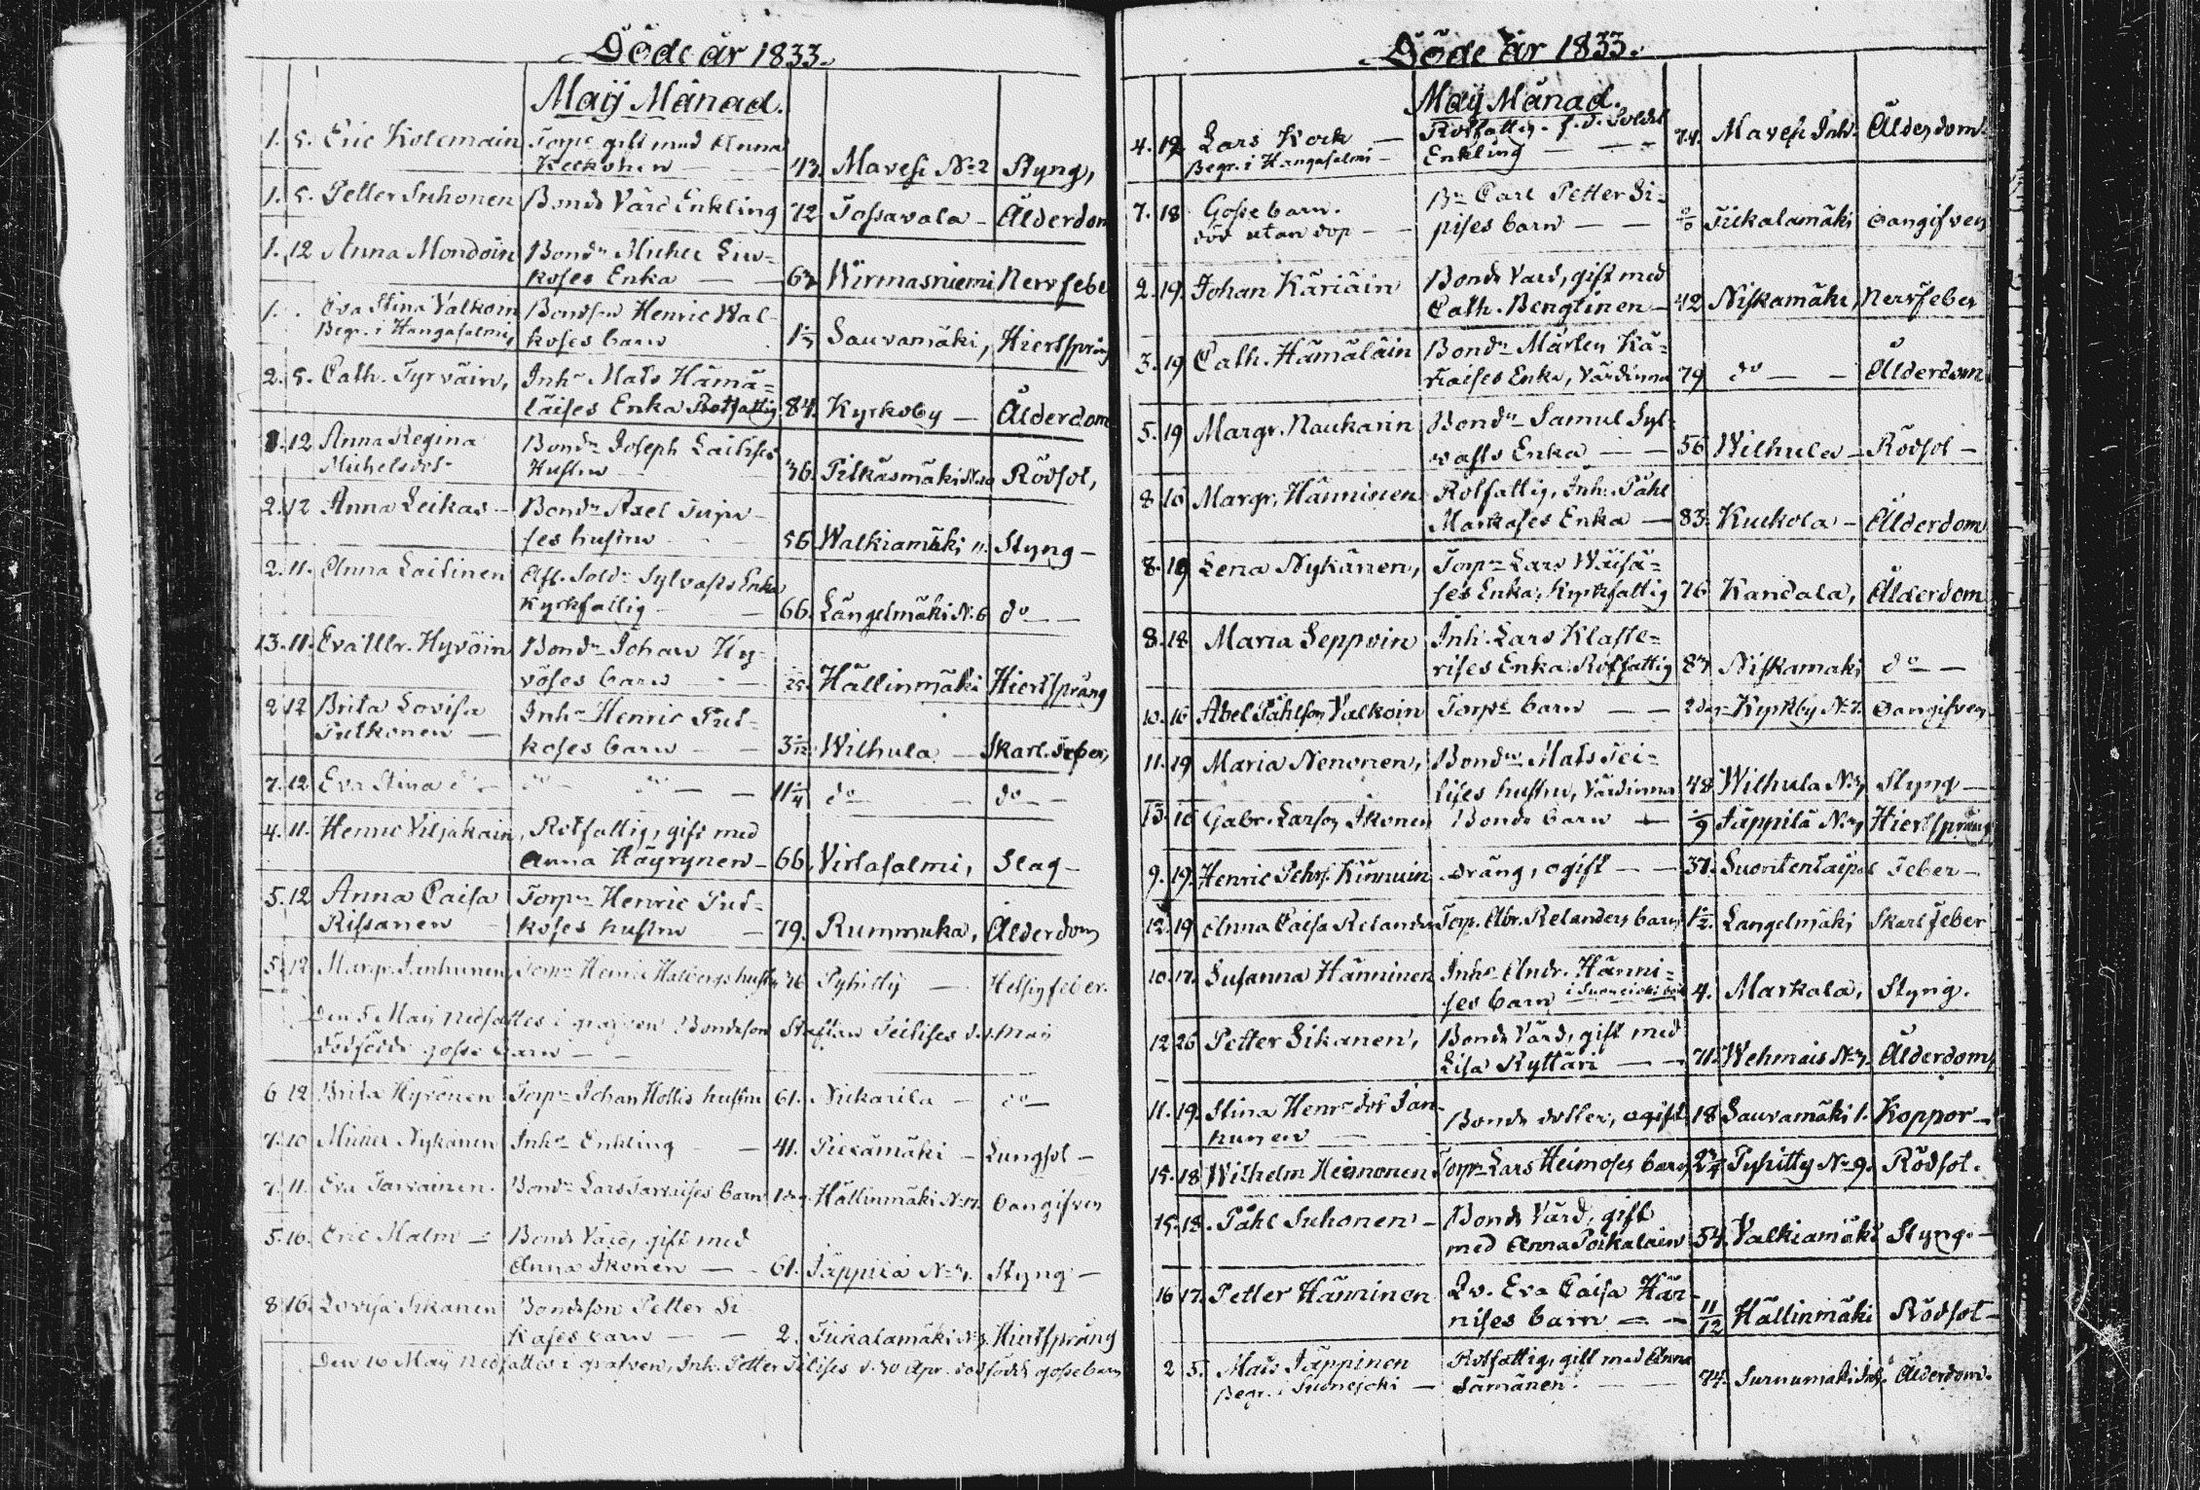 Döde år 1833.
Maij Månad.
1. 5. Eric Kolemain Torpr gift med Anna
Keckonen — 43. Mavesi No 2 Styng,
1. 5. Petter Suhonen Bonde Värd Enkling 72 Tossavala — Ålderdom
1. 12 Anna Mondoin Bondn Michel Liu-
koses Enka — 63 Wirmasniemi Nervfeber
1. . Eva Stina Valkoin Bondson Henric Wal-
Begr. i Hangasalmi, koses barn Sauvamäki, Hiertsprång
2. 5. Cath. Tyrväin, Inhr Mats Hämä-
läises Enka Rotfattig 84. Kyrkoby — Ålderdom
8. 12 Anna Regina Bondn Joseph Laitises
Michelsdotr Hustru 36. Pitkäsmäki Rödsot,
2. 12 Anna Leikas — Bondn Axel
ses hustru 56 Walkiamäki 11. Styng —
2. 11. Anna Laitinen Afl. Soldn Sylvasts Enka
Kyrkfattig 66. Längelmäki N. 6 do —
13. 11. Eva Ulr. Hyvöin Bondn Johan Hy-
vöses barn — Hällinmäki Hiertsprång
2 12 Brita Lovisa Inhr Henric Put-
Putkonen — koses barn — — Wilhula — Skarl. feber,
7. 12. Eva Stina do do do — 11 1/4 do — do —
4. 11. Henric Viljakain, Rotfattig, gift med
Anna Häyrynen — 66. Virtasalmi, Slag —
5. 12 Anna Caisa Torpn Henric Put-
Rissanen — koses hustru — 79. Rummuka, Ålderdom
5. 12 Margr. Janhunen Torpn Henric Halbergs hustru 36 Pyhitty — Hetsig feber.
Den 5 Maij nedsattes i grafven Bondeson Staffan Teilises d. 1. Maij
dödfödde gosse barn — —
6 12 Brita Hyvönen Torpn Johan Hollis hustru 61. Nickarila — do —
7. 10 Michel Nykänen Inhr Enkling — 41. Pieksämäki — Lungsot —
7. 11. Eva Tarvainen. Bondn Lars Tarvaises barn Hällinmäki N. 17. Oangifven
5. 16. Eric Malm — Bonde Värd, gift med
Anna Ikonen — 61. Jäppilä Styng —
8 16. Lovisa Sikanen Bondeson Petter Si
kases barn — — 2. Tiikalamäki Hiertsprång
Den 16 Maij nedsattes i grafven, Inh. Petter Teilises d. 30 Apr. dödfödde gossebarn
Döde år 1833.
Maij Månad.
4. 12 Lars Kock — Rotfattig. f.d. Soldat
Begr. i Hangasalmi — Enkling — — 74. Mavesi Inh. Ålderdom.
7. 18 Gosse barn. Bn Carl Petter Si-
död utan dop — pises barn — — Tiikalamäki Oangifven
2. 19. Johan Käriäin Bonde Värd, gift med
Cath. Bengtinen — 42 Niskamäki, Nervfeber
3. 19 Cath. Hämäläin Bondn Mårten Kä-
riäises Enka, Värdinna 79 do — — Ålderdom
5. 19 Margr. Naukarin Bondn Samul Syl-
vasts Enka — — 56 Wilhula — Rödsot —
8 16 Margr. Hänninen Rotfattig, Inh. Påhl
Markases Enka — 83. Kuckola — Ålderdom
8. 19 Lena Nykänen, Torpr Lars Wäisä-
ses Enka, Kyrkfattig 76 Kandala, Ålderdom
8. 18 Maria Seppoin Inh. Lars Klasse-
rises Enka Rotfattig 83. Niskamäki do —
10. 16 Abel Påhlson Valkoin Torpr barn — — 2 dag. Kyrkby N. 2. Oangifven
11. 19 Maria Nenonen, Bondn Mats Tei-
lises hustru, Värdinna 48 Wilhula Styng —
13. 16 Gabr. Larson Ikonen Bonde barn — Jäppilä Hiertsprång
9. 19. Henric Kinnuin dräng, ogift — — 37. Suontentaipal Feber —
12. 19 Anna Caisa Relander Torp. Abr. Relanders barn 1 1/2. Längelmäki Skarl feber
10. 17. Susanna Hänninen Inhr Andr. Hänni-
ses barn i Suonejoki 4. Markala, Styng.
12 26 Petter Sikanen, Bonde Värd, gift med
Lisa Ryttäri — — 71. Wehmais Ålderdom
11. 19. Stina Henrsdot Jan-
hunen — Bonde dotter, ogift 18 Sauvamäki 1. Koppor —
15. 18 Wilhelm Heimonen Torpr Lars Heimoses barn Pyhitty No 9. Rödsot.
15. 18. Påhl Suhonen — Bonde Värd, gift
med Anna Poikalain 54. Valkiamäki Styng. —
16 17. Petter Hänninen Qv. Eva Caisa Hän-
nises barn — — 11/12 Hällinmäki Rödsot —
2 5. Mats Jäppinen Rotfattig, gift med Anna
Begr. i Suonejoki — Jämänen. — 74. Surnumäki Inh. Ålderdom.